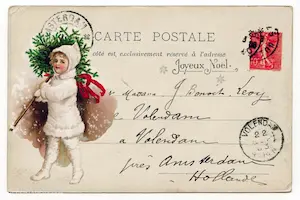 AMSTERDAM
CARTE POSTALE
côté est exclusivement réservé à l'adresse
Joyeux Noël
Madame J Benoit Levy
Volendam
à Volendam
près Amsterdam
Hollande
VOLENDAM
22